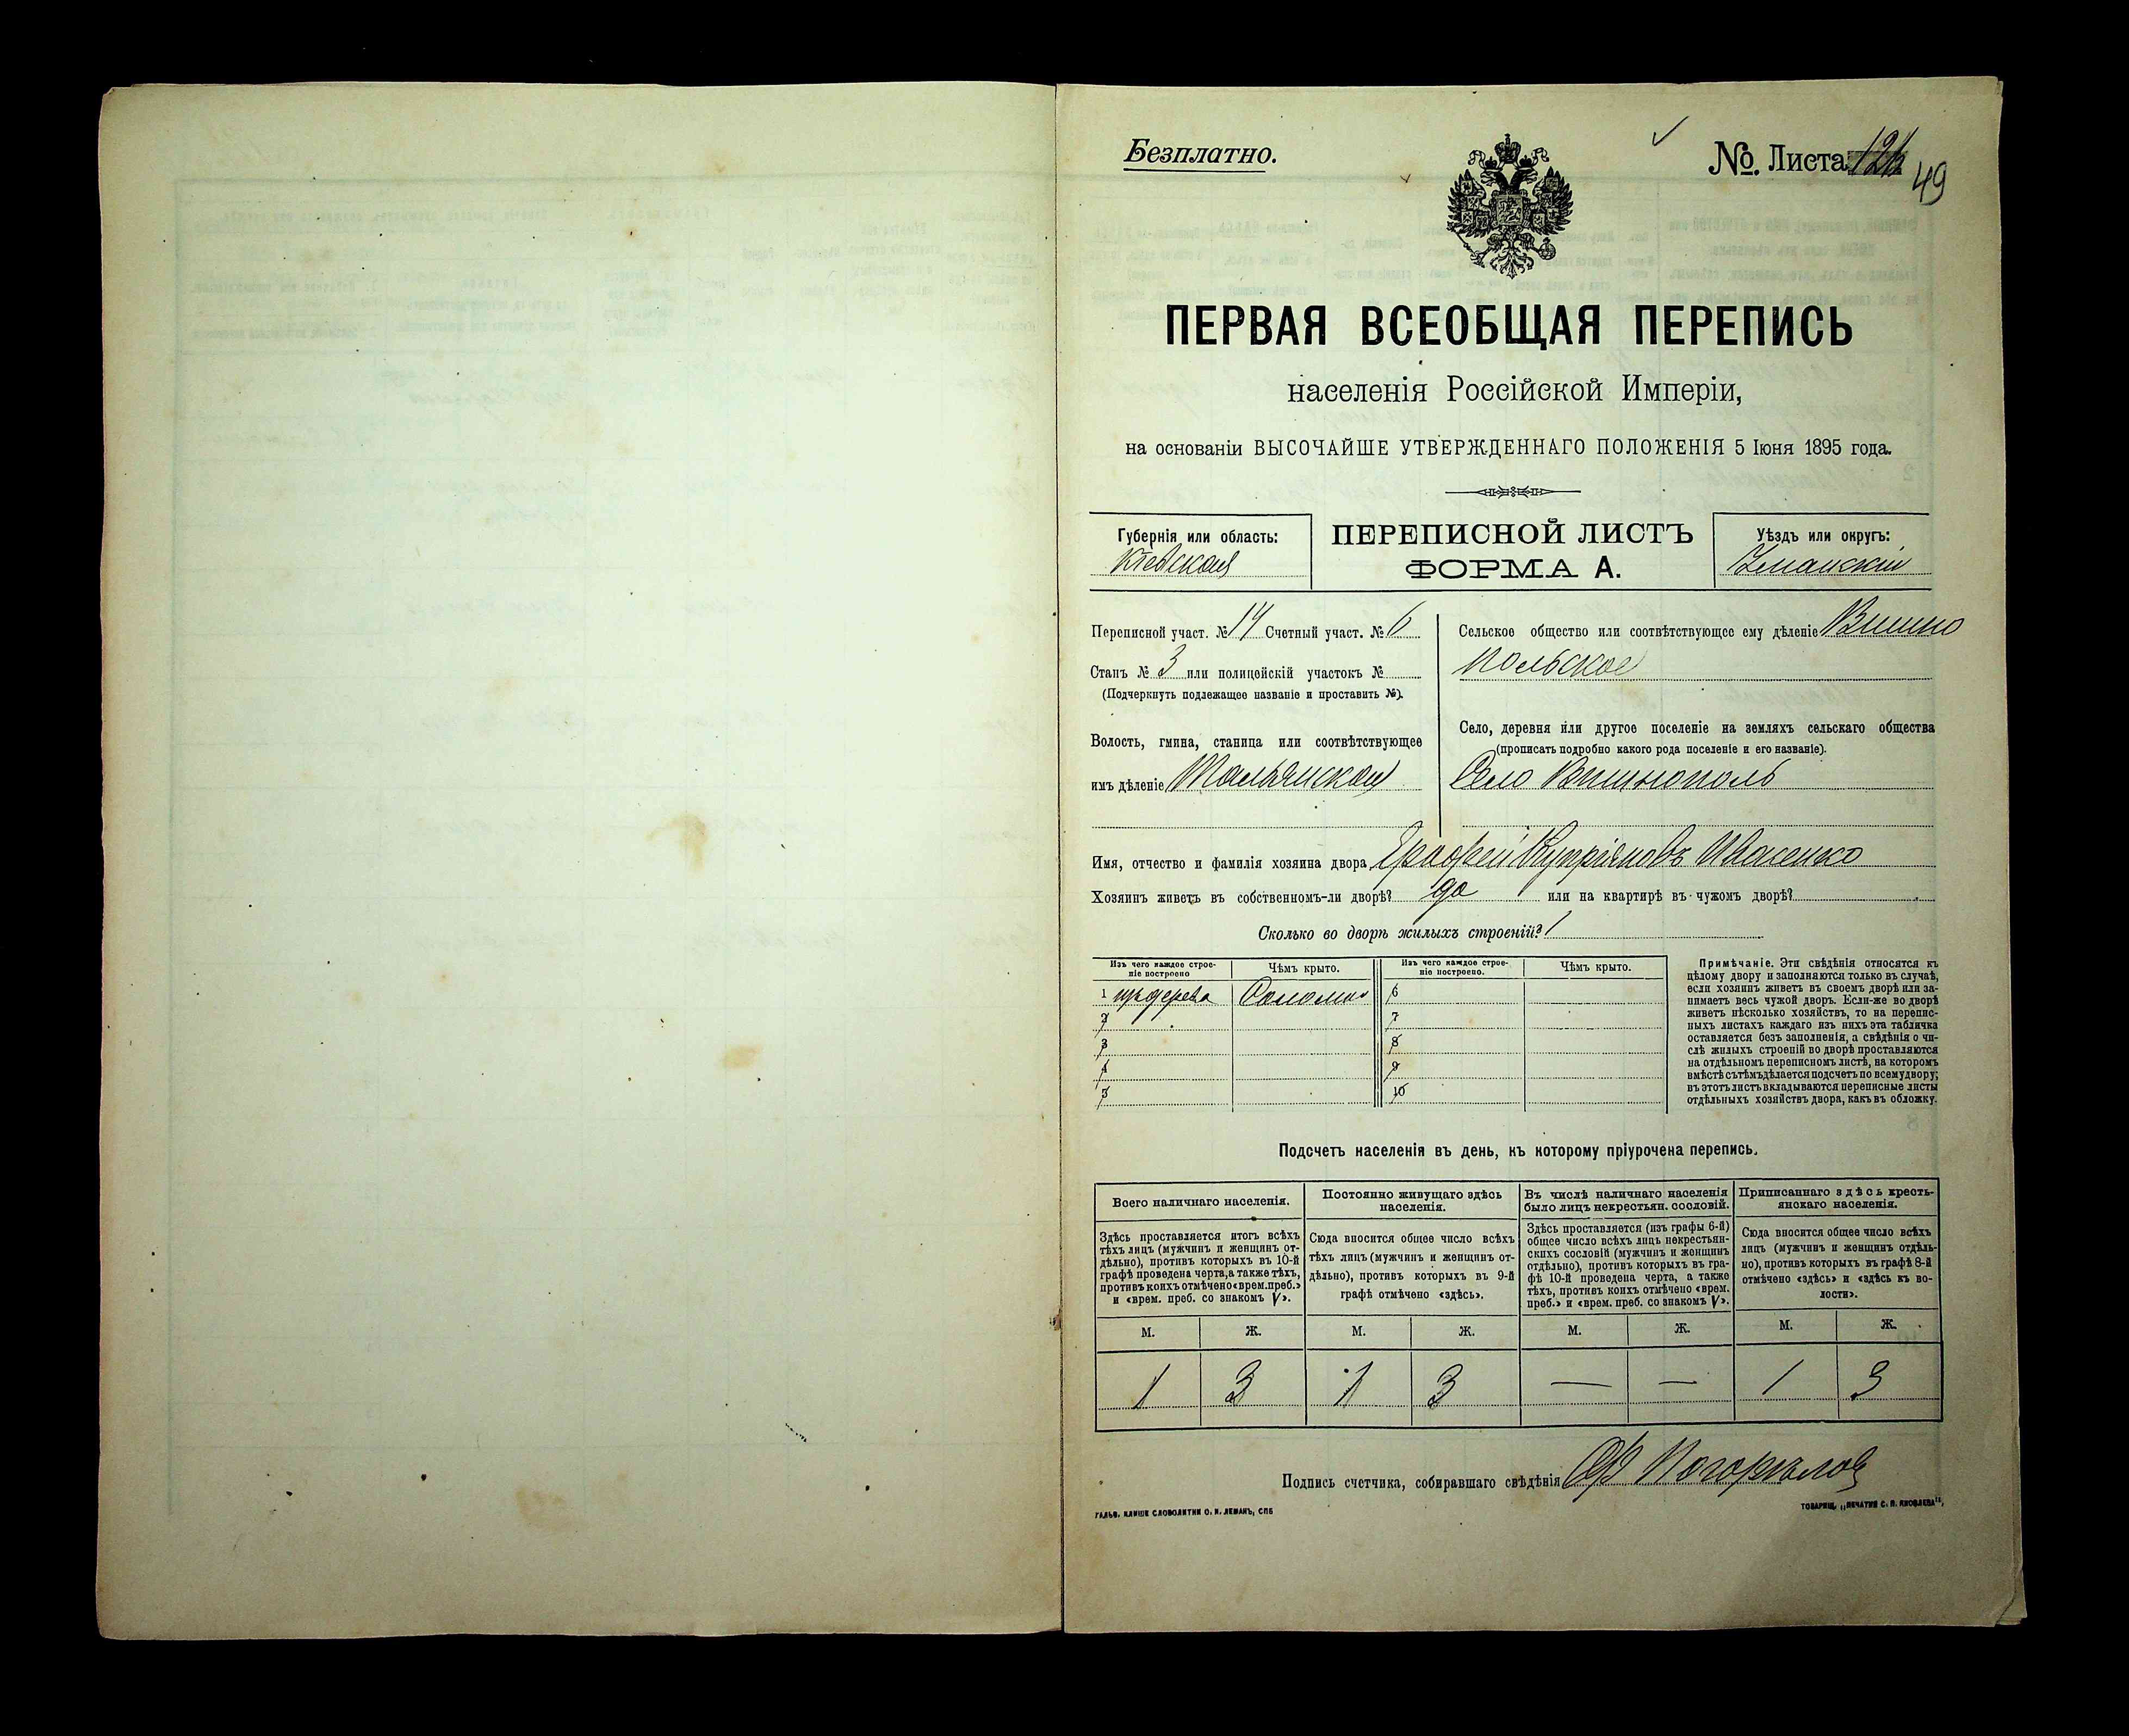 Безплатно.
№ Листа 49
ПЕРВАЯ ВСЕОБЩАЯ ПЕРЕПИСЬ
населенія Россійской Имперіи,
на основаніи ВЫСОЧАЙШЕ УТВЕРЖДЕННАГО ПОЛОЖЕНІЯ 5 Іюня 1895 года.
Губернія или область:
Кіевская
ПЕРЕПИСНОЙ ЛИСТЪ
ФОРМА А.
Уѣздъ или округъ:
Уманскій
Переписной участ. № 14 Счетный участ. № 6
Станъ № 3 или полицейскій участокъ №
(Подчеркнуть подлежащее названіе и проставить №).
Волость, гмина, станица или соотвѣтствующее
имъ дѣленіе Тальянская
Сельское общество или соотвѣтствующее ему дѣленіе Вишно
польское
Село, деревня или другое поселеніе на земляхъ сельскаго общества
(прописать подробно какого рода поселеніе и его названіе).
Село Вишнополь
Имя, отчество и фамилія хозяина двора Ерофей Купріяновъ Ивасенко
Хозяинъ живетъ въ собственномъ-ли дворѣ? да или на квартирѣ въ чужомъ дворѣ?
Сколько во дворѣ жилыхъ строеній? 1
Изъ чего каждое строе-
ніе построено
Чѣмъ крыто.
Изъ чего каждое строе-
ніе построено.
Чѣмъ крыто.
1 изъ дерева Соломою 6
2 7
3 8
4 9
5 10
Примѣчаніе. Эти свѣдѣнія относятся къ
цѣлому двору и заполняются только въ случаѣ,
если хозяинъ живетъ въ своемъ дворѣ или за-
нимаетъ весь чужой дворъ. Если-же во дворѣ
живетъ нѣсколько хозяйствъ, то на перепис-
ныхъ листахъ каждаго изъ нихъ эта табличка
оставляется безъ заполненія, а свѣдѣнія о чи-
слѣ жилыхъ строеній во дворѣ проставляются
на отдѣльномъ переписномъ листѣ, на которомъ
вмѣстѣ съ тѣмъ дѣлается подсчетъ по всему двору;
въ этотъ листъ вкладываются переписные листы
отдѣльныхъ хозяйствъ двора, какъ въ обложку.
Подсчетъ населенія въ день, къ которому пріурочена перепись.
Всего наличнаго населенія.
Здѣсь проставляется итогъ всѣхъ
тѣхъ лицъ (мужчинъ и женщинъ от-
дѣльно), противъ которыхъ въ 10-й
графѣ проведена черта, а также тѣхъ,
противъ коихъ отмѣчено «врем. преб.»
и «врем. преб. со знакомъ V».
Постоянно живущаго здѣсь
населенія.
Сюда вносится общее число всѣхъ
тѣхъ лицъ (мужчинъ и женщинъ от-
дѣльно), противъ которыхъ въ 9-й
графѣ отмѣчено «здѣсь».
Въ числѣ наличнаго населенія
было лицъ некрестьян. сословій.
Здѣсь проставляется (изъ графы 6-й)
общее число всѣхъ лицъ некрестьян-
скихъ сословій (мужчинъ и женщинъ
отдѣльно), противъ которыхъ въ гра-
фѣ 10-й проведена черта, а также
тѣхъ, противъ коихъ отмѣчено «врем.
преб.» и «врем. преб. со знакомъ V».
Приписаннаго здѣсь кресть-
янскаго населенія.
Сюда вносится общее число всѣхъ
лицъ (мужчинъ и женщинъ отдѣль-
но), противъ которыхъ въ графѣ 8-й
отмѣчено «здѣсь» и «здѣсь къ во-
лости».
М. Ж. М. Ж. М. Ж. М. Ж.
1 3 1 3 — — 1 3
Подпись счетчика, собиравшаго свѣдѣнія Погорѣлов
ГАЛЬВ. КЛИШЕ СЛОВОЛИТНИ О. И. ЛЕМАНЪ, СПБ
ТОВАРИЩ. „ПЕЧАТНЯ С. П. ЯКОВЛЕВА“,